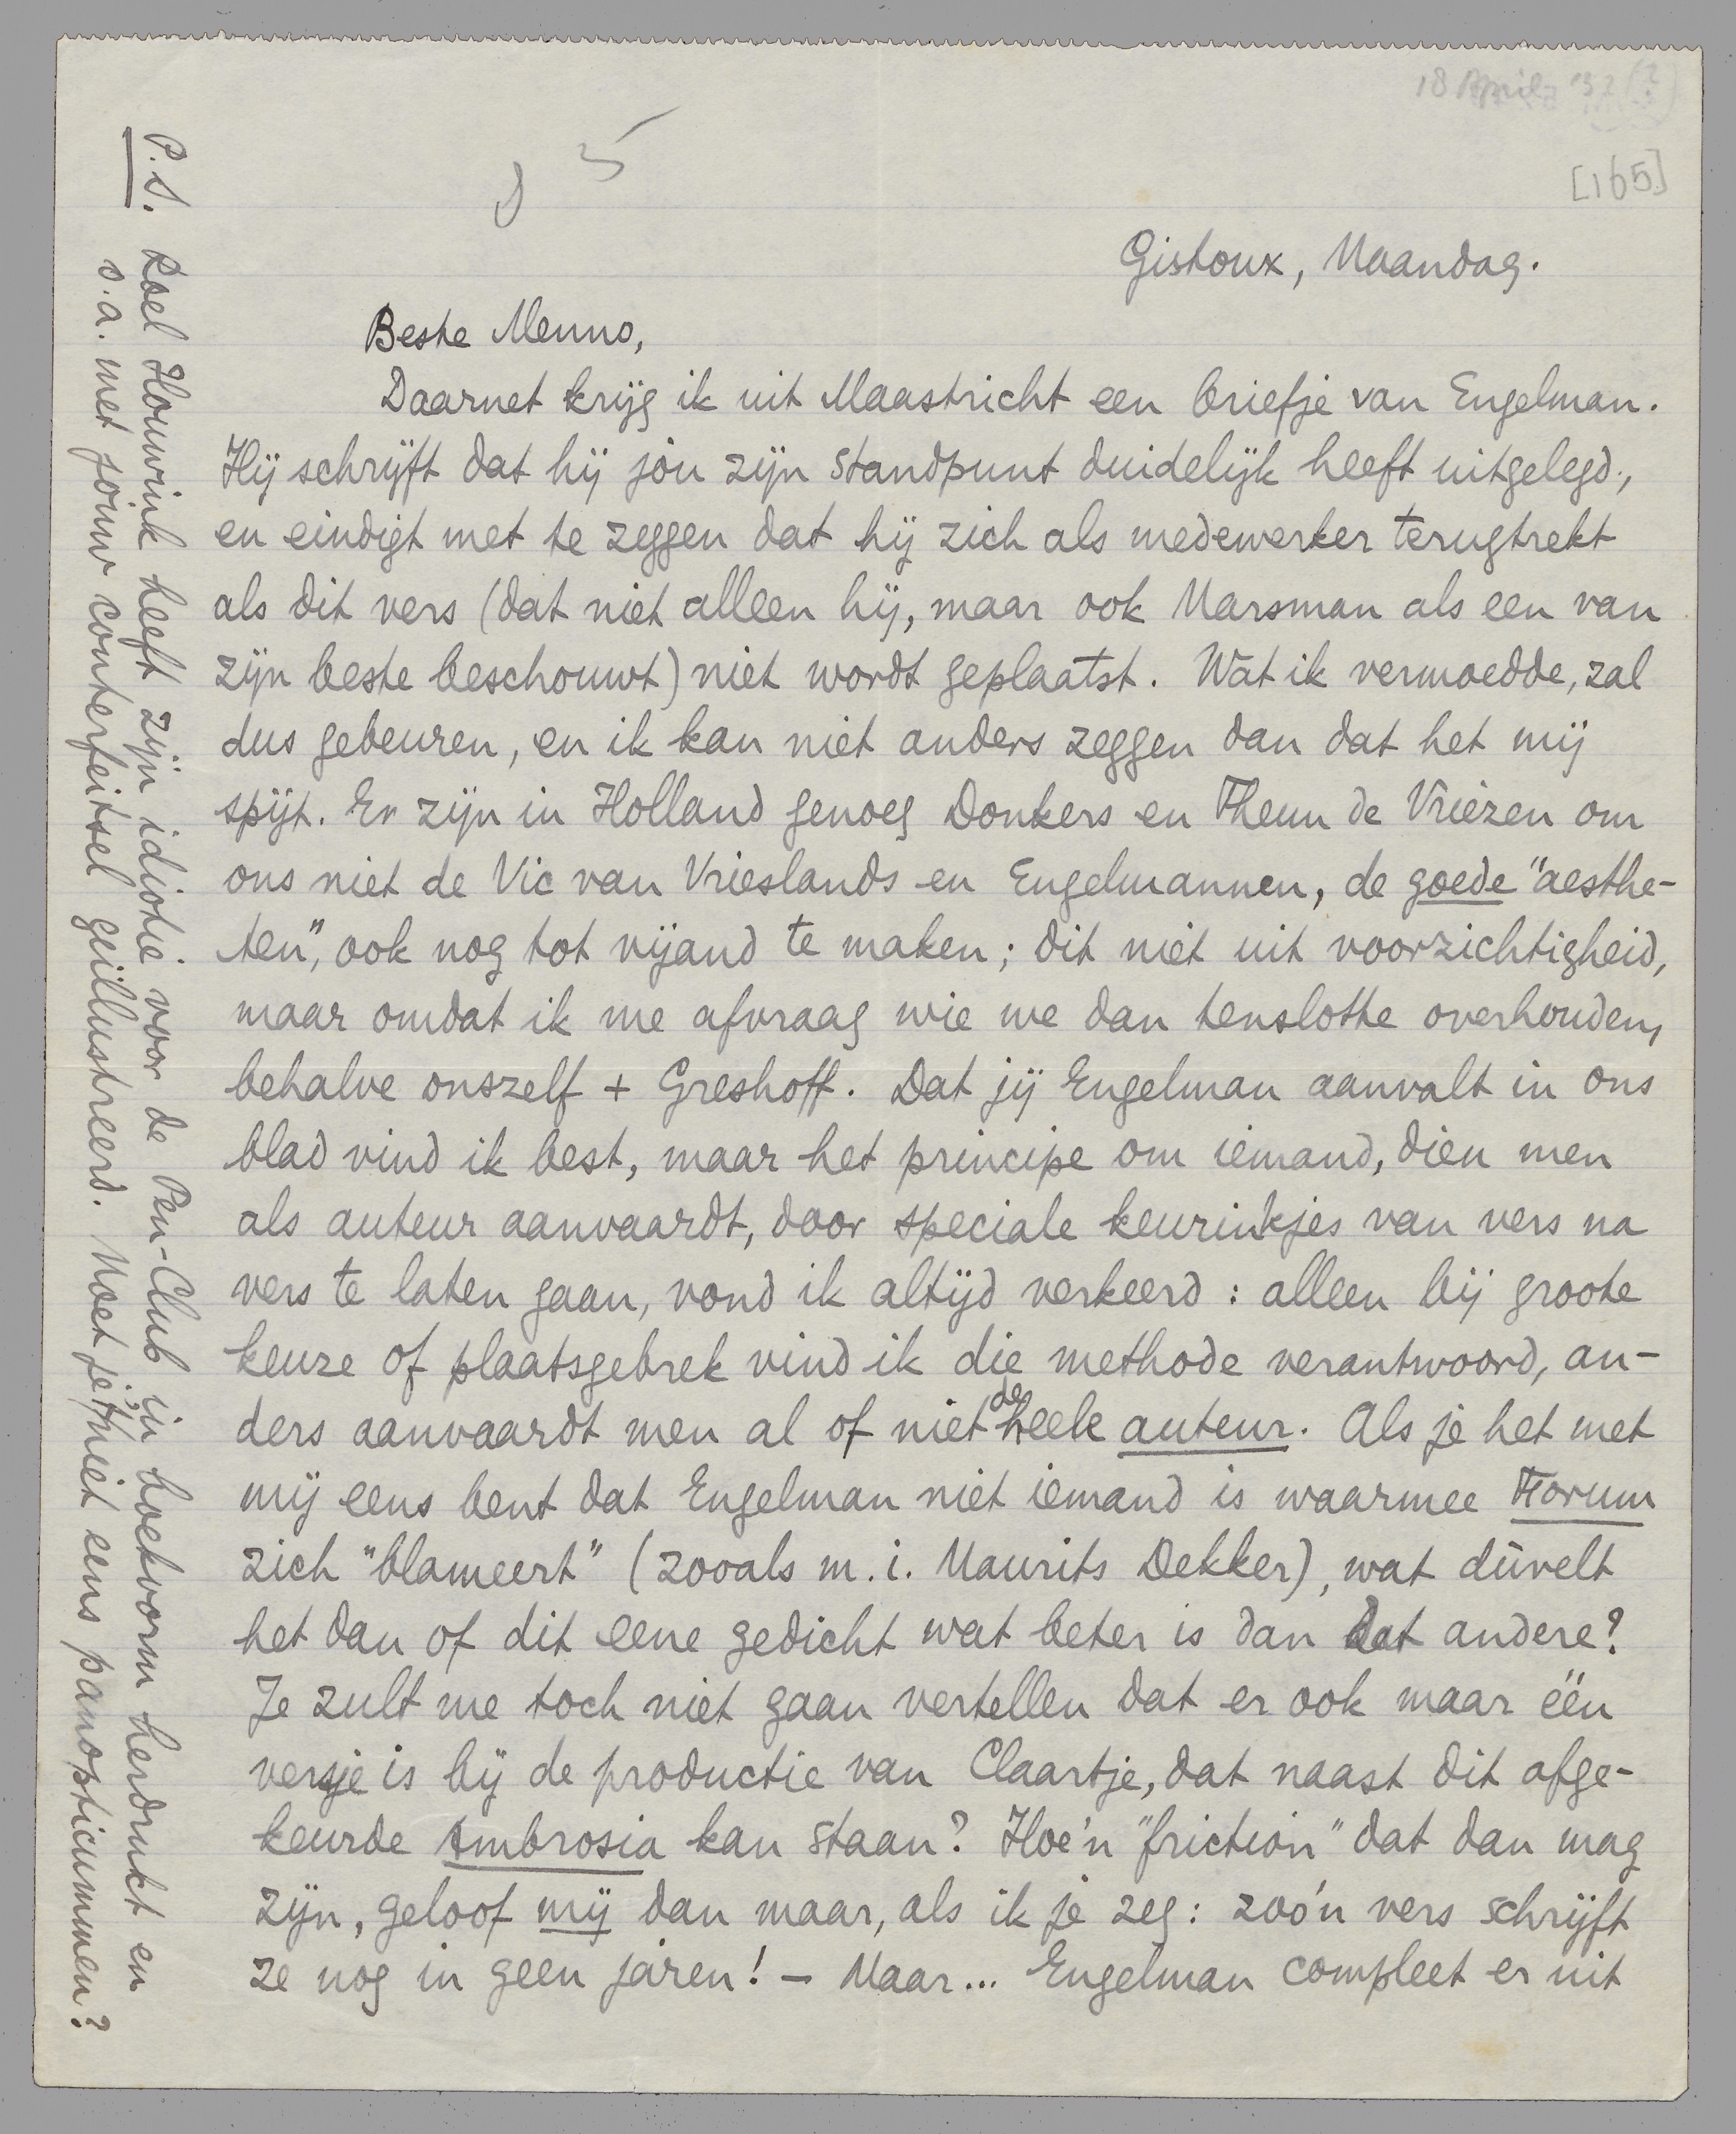 18 April '32 (?)
[165]
D 5
Gistoux, Maandag.
Beste Menno,
Daarnet krijg ik uit Maastricht een briefje van Engelman.
Hij schrijft dat hij jòu zijn standpunt duidelijk heeft uitgelegd,
en eindigt met te zeggen dat hij zich als medewerker terugtrekt
als dit vers (dat niet alleen hij, maar ook Marsman als een van
zijn beste beschouwt) niet wordt geplaatst. Wat ik vermoedde, zal
dus gebeuren, en ik kan niet anders zeggen dan dat het mij
spijt. Er zijn in Holland genoeg Donkers en Theun de Vriezen om
ons niet de Vic van Vrieslands en Engelmannen, de goede "aesthe-
ten", ook nog tot vijand te maken; dit niet uit voorzichtigheid,
maar omdat ik me afvraag wie we dan tenslotte overhouden,
behalve onszelf + Greshoff. Dat jij Engelman aanvalt in ons
blad vind ik best, maar het principe om iemand, dien men
als auteur aanvaardt, door speciale keurinkjes van vers na
vers te laten gaan, vond ik altijd verkeerd: alleen bij groote
keuze of plaatsgebrek vind ik die methode verantwoord, an-
ders aanvaardt men al of niet de heele auteur. Als je het met
mij eens bent dat Engelman niet iemand is waarmee Forum
zich "blameert" (zooals m.i. Maurits Dekker), wat dùvelt
het dan of dit eene gedicht wat beter is dan dat andere?
Je zult me toch niet gaan vertellen dat er ook maar één
versje is bij de productie van Claartje, dat naast dit afge-
keurde Ambrosia kan staan? Hoe'n "friction" dat dan mag
zijn, geloof mij dan maar, als ik je zeg: zóó'n vers schrijft
ze nog in geen jaren! – Maar... Engelman compleet er uit
P.S. Roel Houwink heeft zijn idiotie voor de Pen-Club in boekvorm herdrukt en
o.a. met jouw conterfeitsel geïllustreerd. Moet je 't niet eens panopticummen?